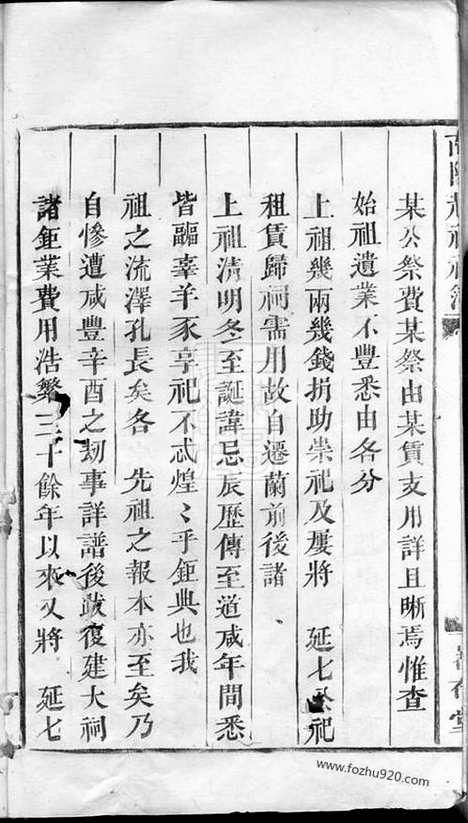 某公祭費某祭由某賃支用詳且晰焉惟查
始祖遺業不豐悉由各分
上祖幾兩幾錢捐助崇祀及屢將 延七祀
租賃歸祠需用故自遷蘭前後諸
上祖清明冬至誕諱忌辰歷傳至道咸年間悉
皆羊豕享祀不忒煌〻乎鉅典也我
祖之流澤孔長矣各 先祖之報本亦至矣乃
自慘遭咸豐辛酉之刼事詳譜後跋復建大祠
諸鉅業費用浩繁三十餘年以來又將 延七
www.fozhu920.com